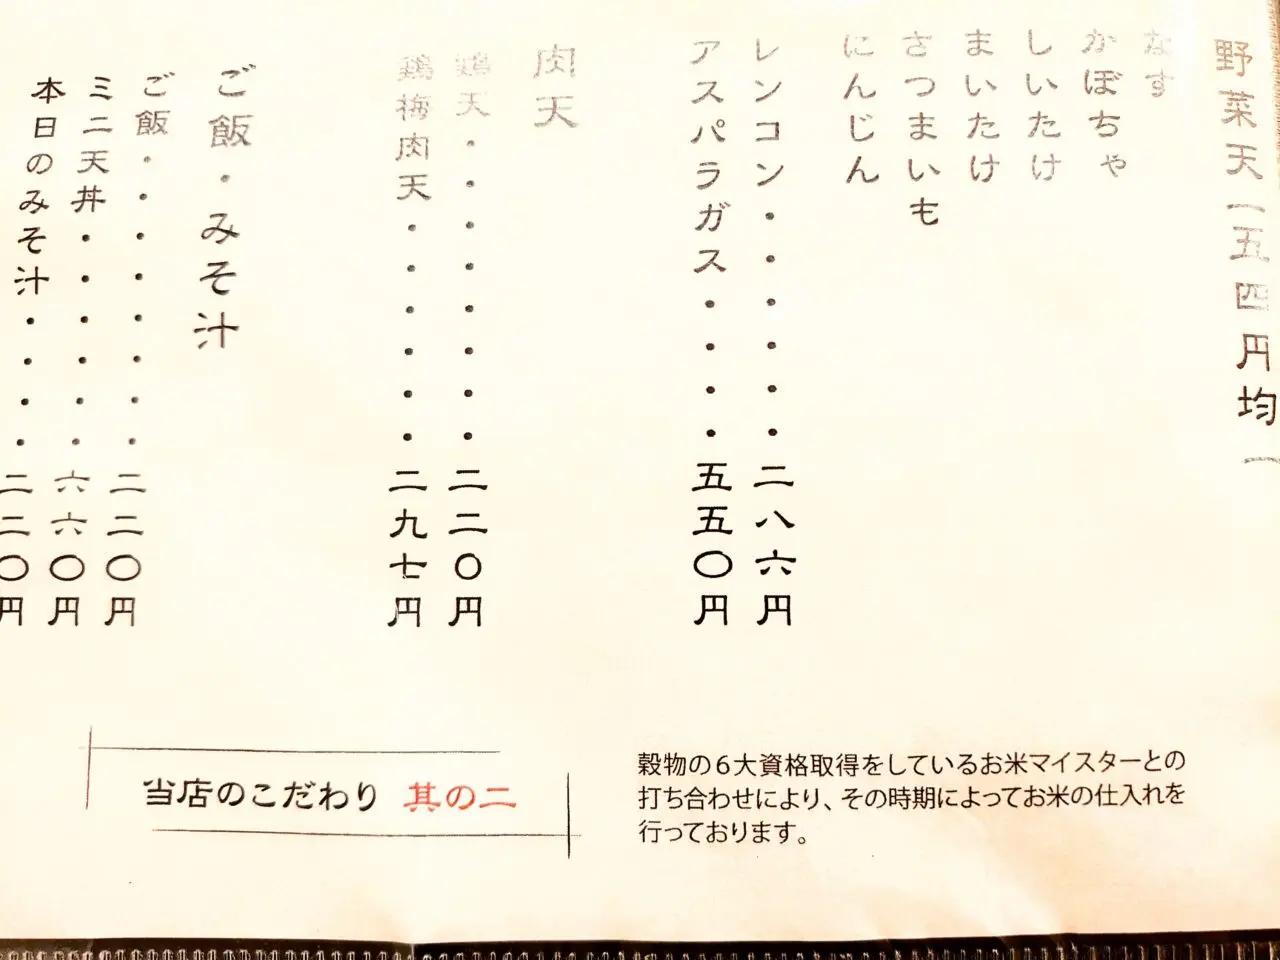 野菜天(一五四円均一)
なす
かぼちゃ
しいたけ
まいたけ
さつまいも
にんじん
レンコン・・・・・・二八六円
アスパラガス・・・・五五〇円
肉天
鶏天・・・・・・・・二二〇円
鶏梅肉天・・・・・・二九七円
ご飯・みそ汁
ご飯・・・・・・・・二二〇円
ミニ天丼・・・・・・六六〇円
本日のみそ汁・・・・二二〇円
当店のこだわり 其の二
穀物の6大資格取得をしているお米マイスターとの
打ち合わせにより、その時期によってお米の仕入れを
行っております。